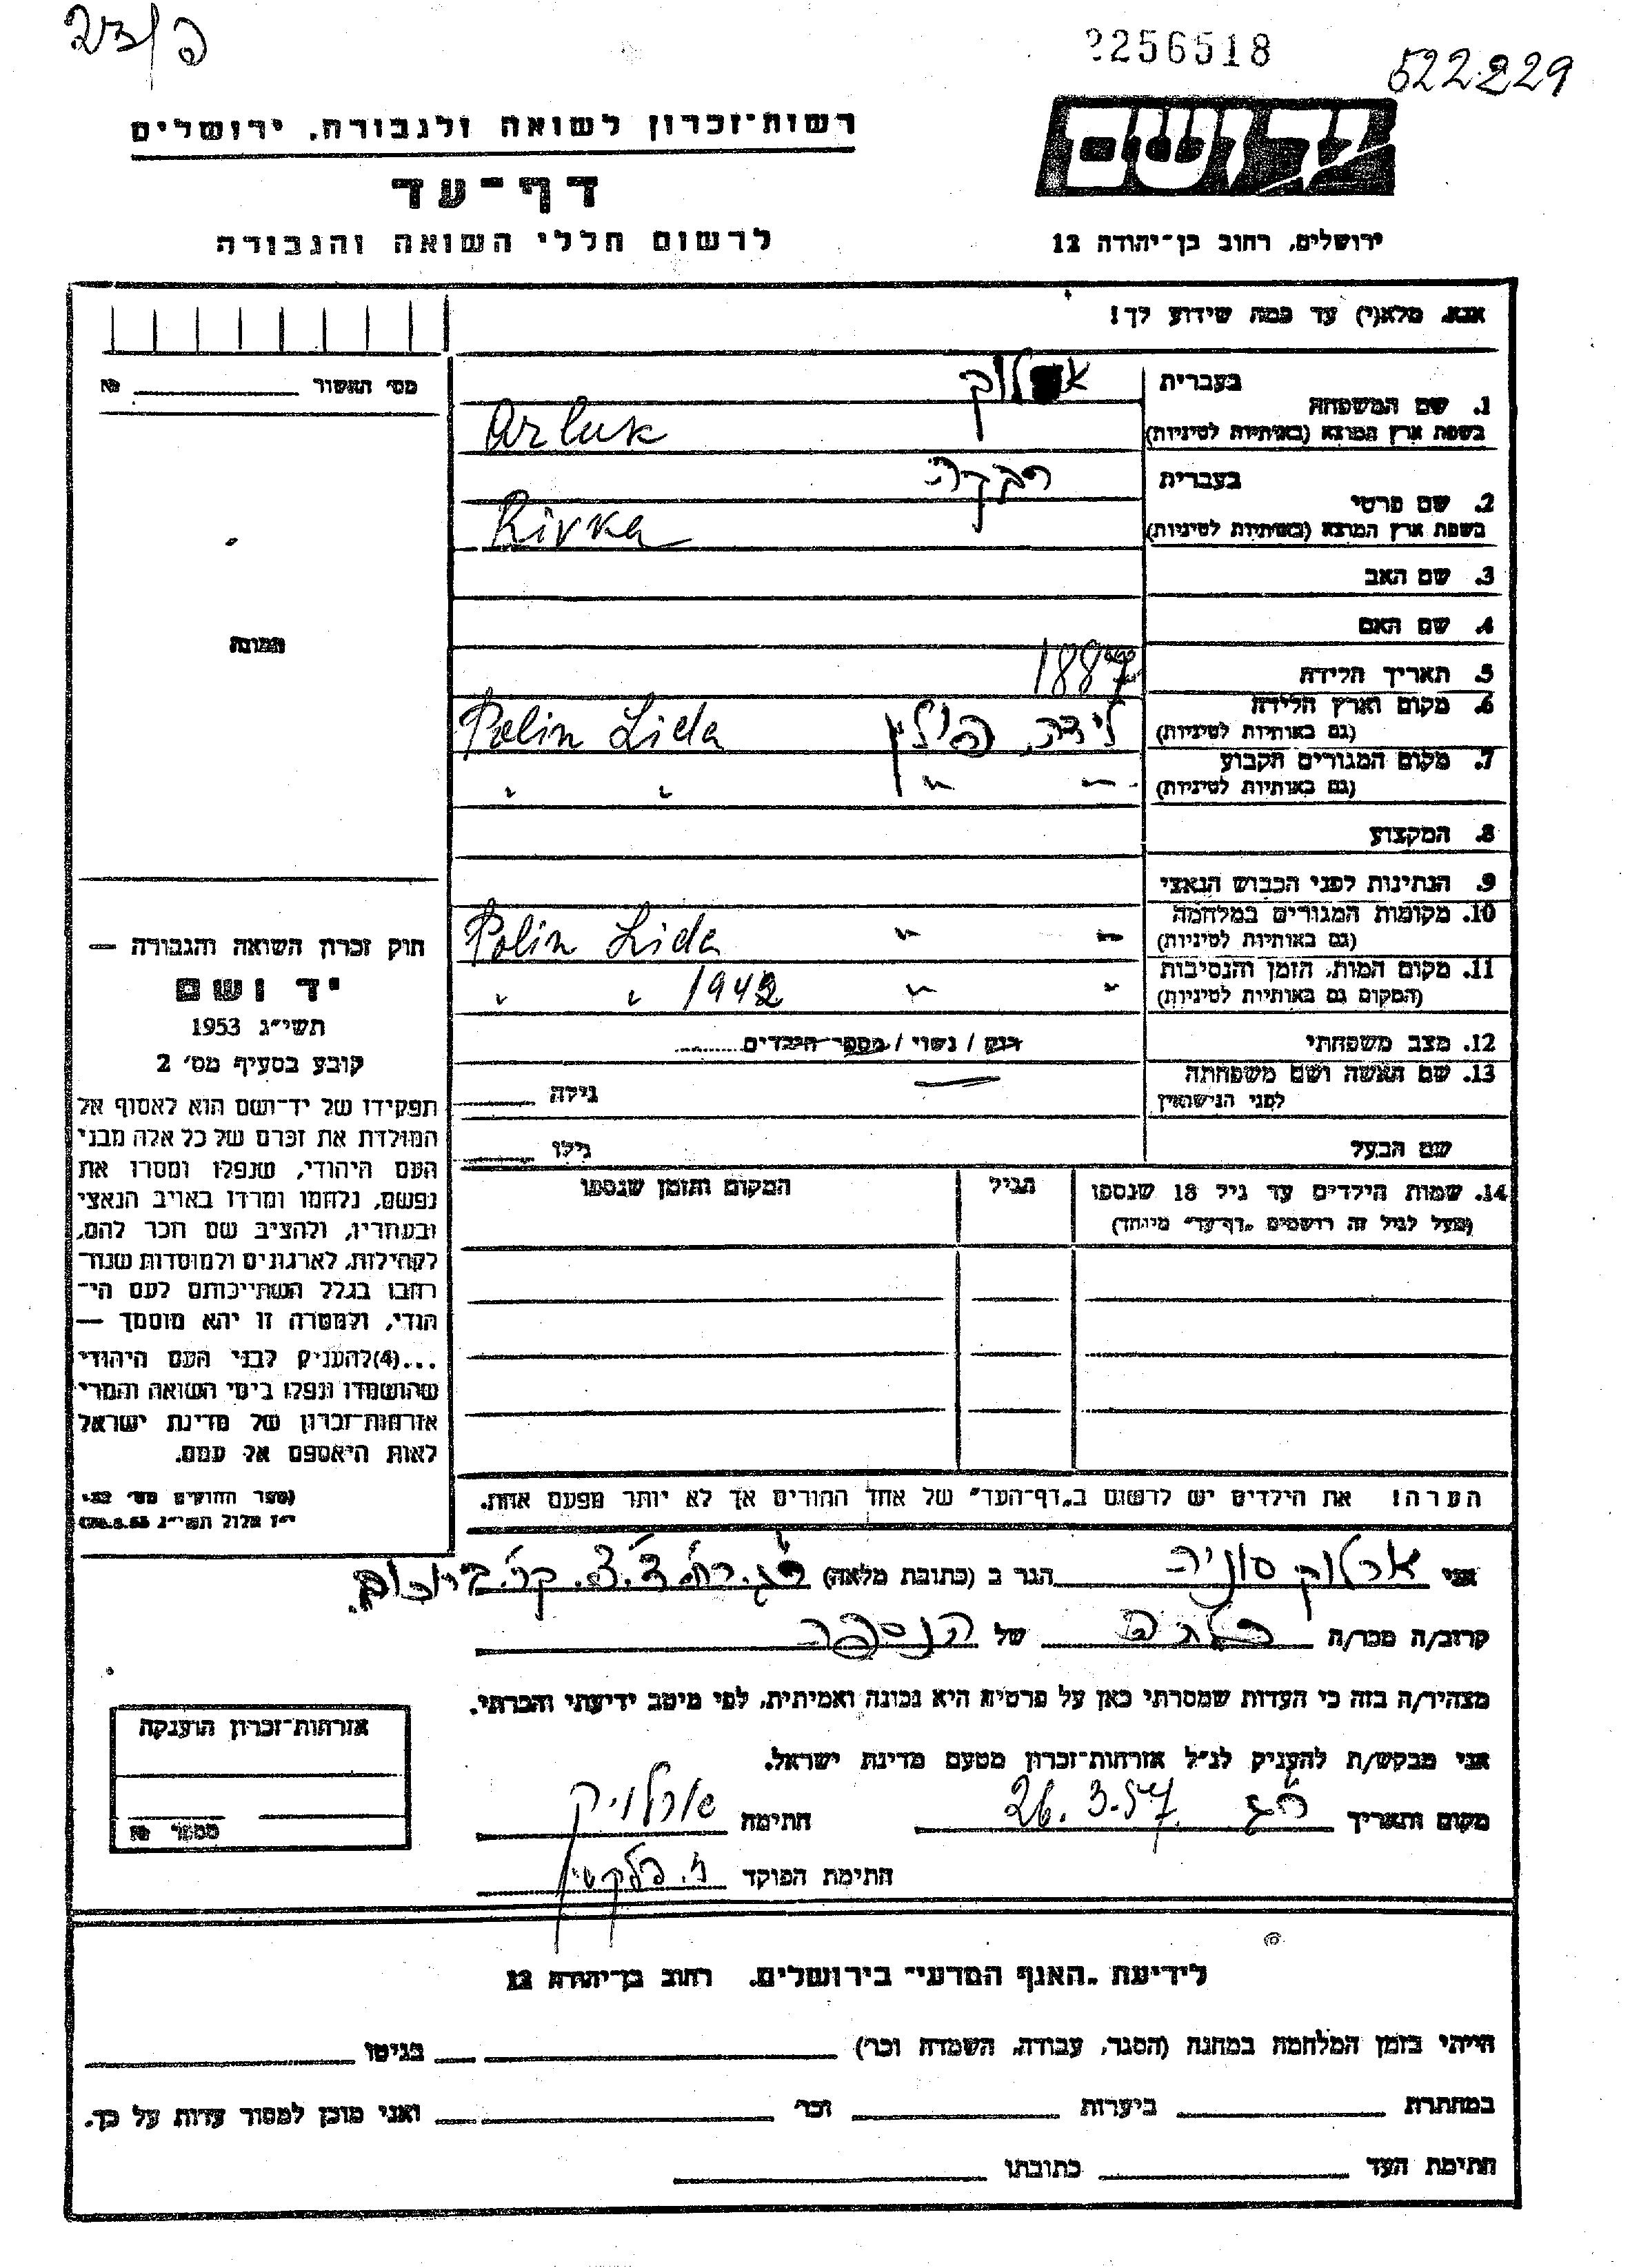 23/פ
2256518
522229
רשות־זכרון לשואה ולגבורה, ירושלים
דף־עד
לרשום חללי השואה והגבורה
ירושלים, רחוב בן־יהודה 12
אנא, מלא(י) עד כמה שידוע לך!
מס׳ האשור № 
בעברית
1. שם המשפחה
בשפת ארץ המוצא (באותיות לטיניות)
ארלוק
Arluk
בעברית
2. שם פרטי
בשפת ארץ המוצא (באותיות לטיניות)
רבקה
Rivka
3. שם האב
4. שם האם
5. תאריך הלידה 1887
6. מקום וארץ הלידה
(גם באותיות לטיניות)
לידה, פולין Polin Lida
7. מקום המגורים הקבוע
(גם באותיות לטיניות)
8. המקצוע
9. הנתינות לפני הכבוש הנאצי
10. מקומות המגורים במלחמה
(גם באותיות לטיניות)
Polin Lida
11. מקום המות, הזמן והנסיבות
(המקום גם באותיות לטיניות)
1942
12. מצב משפחתי רוק / נשוי / מספר הילדים
13. שם האשה ושם משפחתה
לפני הנישואין
גילה
שם הבעל גילו
14. שמות הילדים עד גיל 18 שנספו
(מעל לגיל זה רושמים „דף־עד״ מיוחד)
הגיל
המקום והזמן שנספו
הערה! את הילדים יש לרשום ב„דף־העד״ של אחד ההורים אך לא יותר מפעם אחת.
תמונה
חוק זכרון השואה והגבורה —
יד ושם
תשי״ג 1953
קובע בסעיף מס׳ 2
תפקידו של יד־ושם הוא לאסוף אל
המולדת את זכרם של כל אלה מבני
העם היהודי, שנפלו ומסרו את
נפשם, נלחמו ומרדו באויב הנאצי
ובעוזריו, ולהציב שם וזכר להם,
לקהילות, לארגונים ולמוסדות שנח־
רבו בגלל השתייכותם לעם הי־
הודי, ולמטרה זו יהא מוסמך —
...(4)להעניק לבני העם היהודי
שהושמדו ונפלו בימי השואה והמרי
אזרחות־זכרון של מדינת ישראל
לאות היאספם אל עמם.
(ספר החוקים מס׳ 132,
י״ז אלול תשי״ג 28.8.53)
אני ארלוק סוניה הגר ב (כתובת מלאה)
קרוב/ה מכר/ה כלתה של הנספה
מצהיר/ה בזה כי העדות שמסרתי כאן על פרטיה היא נכונה ואמיתית, לפי מיטב ידיעתי והכרתי.
אני מבקש/ת להעניק לנ״ל אזרחות־זכרון מטעם מדינת ישראל.
מקום ותאריך 26.3.57 חתימה ארלוק
חתימת הפוקד
אזרחות־זכרון הוענקה
מספר №
לידיעת „האגף המדעי״ בירושלים, רחוב בן־יהודה 12
הייתי בזמן המלחמה במחנה (הסגר, עבודה, השמדה וכו׳) בגיטו
במחתרת ביערות וכו׳ ואני מוכן למסור עדות על כך.
חתימת העד כתובתו